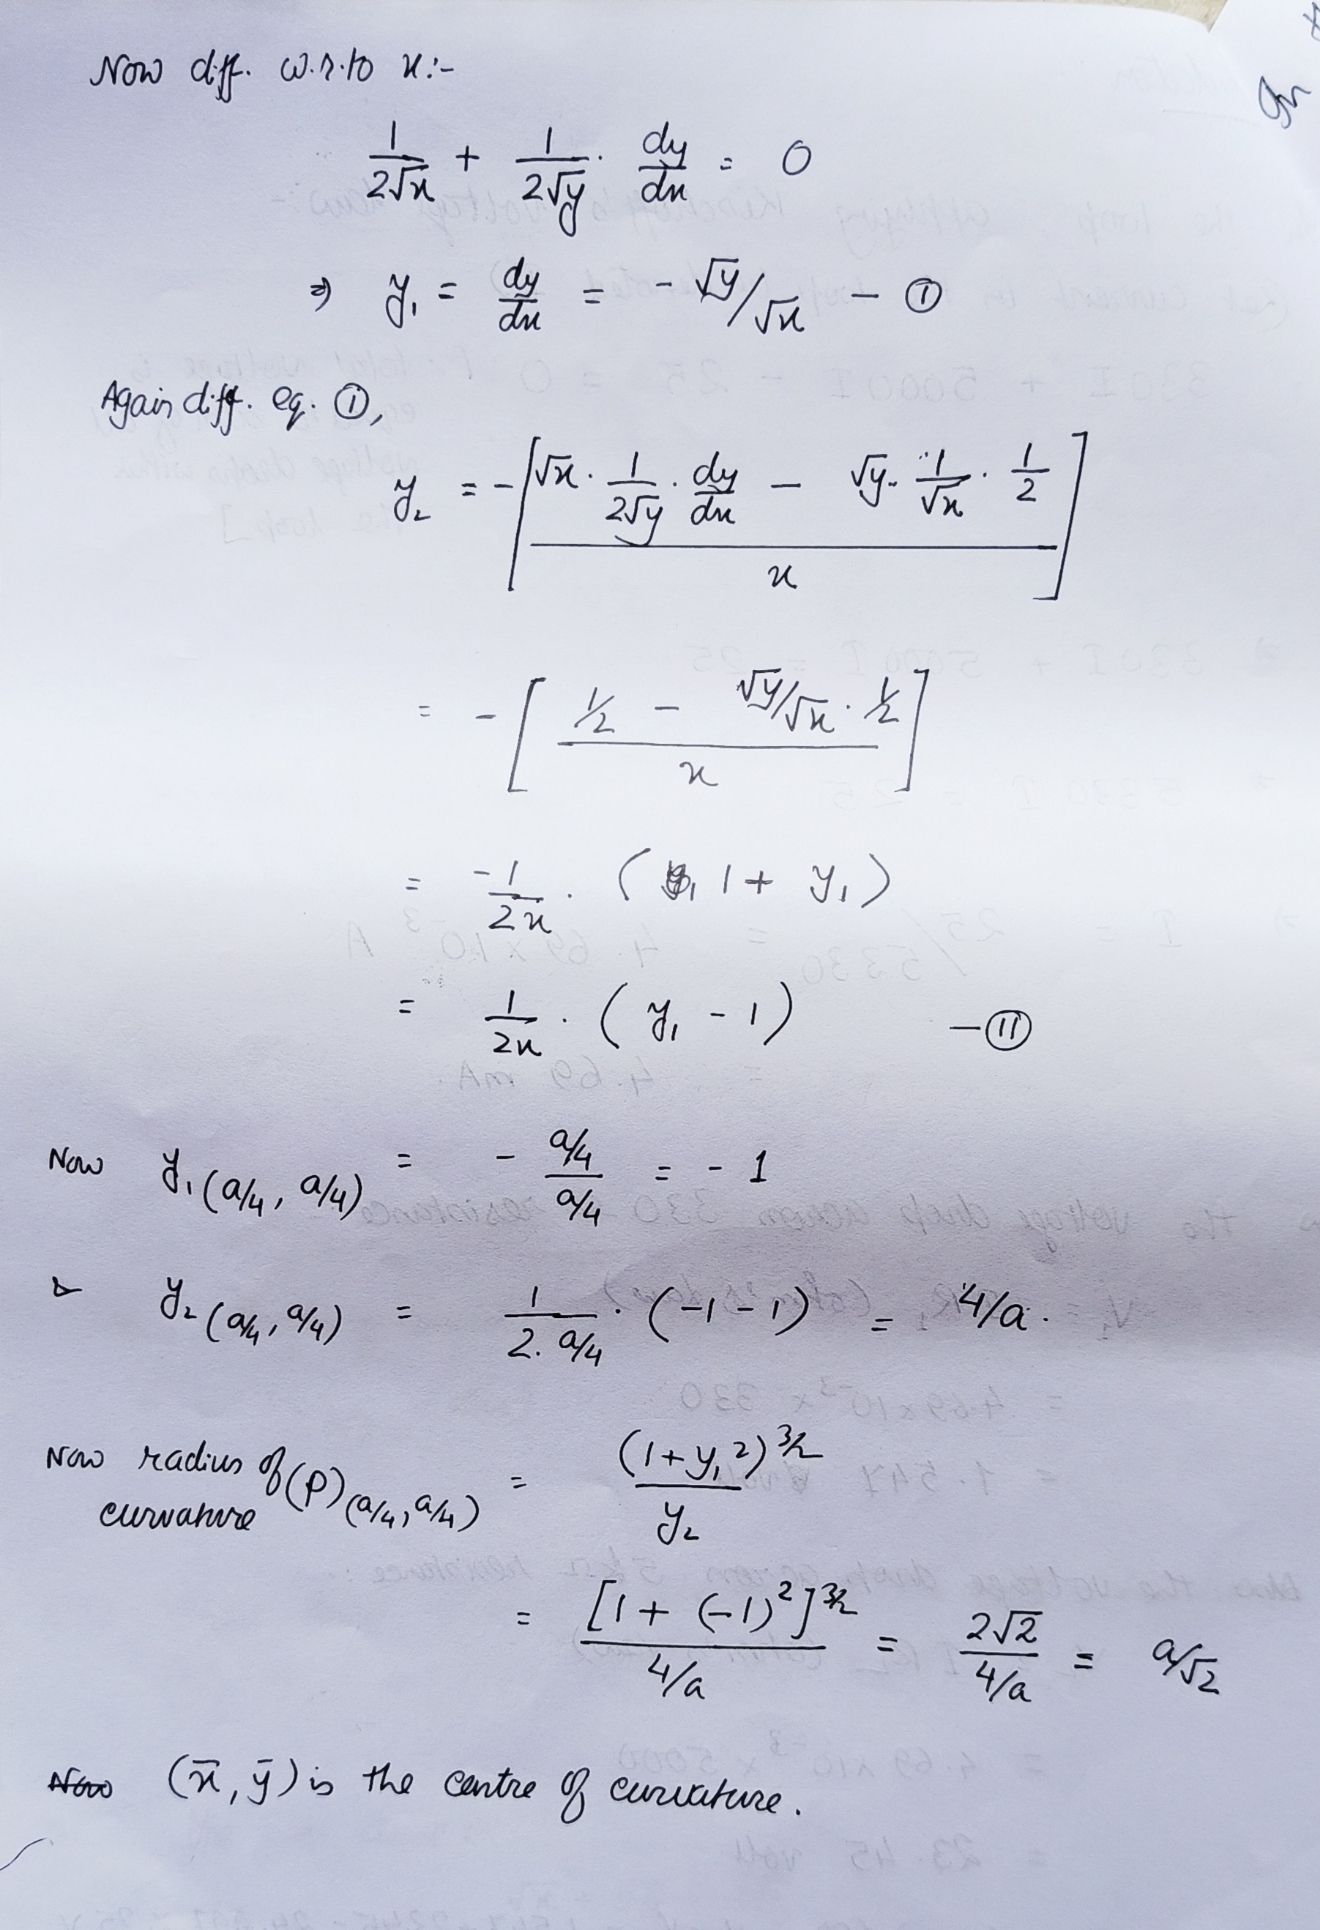 Now diff. w.r.to x:-
1/2√x + 1/2√y . dy/dx = 0
⇒ y₁ = dy/dx = - √y/√x - ①
Again diff. eq. ①,
y₂ = -[(√x . 1/2√y . dy/dx - √y . 1/√x . 1/2) / x]
= -[(1/2 - √y/√x . 1/2) / x]
= -1/2x . (1 + y₁)
= 1/2x . (y₁ - 1) - ⑪
Now y₁(a/4, a/4) = - (a/4)/(a/4) = - 1
& y₂(a/4, a/4) = 1/(2. a/4) . (-1 - 1) = 4/a.
Now radius of curvature (ρ)(a/4, a/4) = (1+y₁²)^3/2 / y₂
= [1 + (-1)²]^3/2 / (4/a) = 2√2 / (4/a) = a/√2
Now (x̄, ȳ) is the centre of curvature.